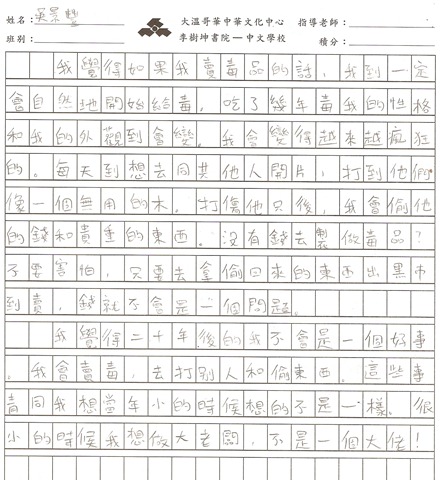 姓名：吳景豐 大溫哥華中華文化中心 指導老師：
班別： 李樹坤書院－中文學校 積分：
我覺得如果我賣毒品的話，我到一定
會自然地開始給毒。吃了幾年毒我的性格
和我的外觀到會變。我會變得越來越瘋狂
的。每天到想去同其他人開片，打到他們
像一個無用的木。打傷他只後，我會偷他
的錢和貴重的東西。沒有錢去製做毒品？
不要害怕，只要去拿偷回來的東西出黑市
到賣，錢就不會是一個問題。
我覺得二十年後的我不會是一個好事
。我會賣毒，去打別人和偷東西。這些事
青同我想當年小的時候想的不是一樣。很
小的時候我想做大老闆，不是一個大佬！